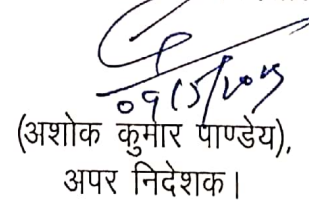 09/5/2025
(अशोक कुमार पाण्डेय),
अपर निदेशक।